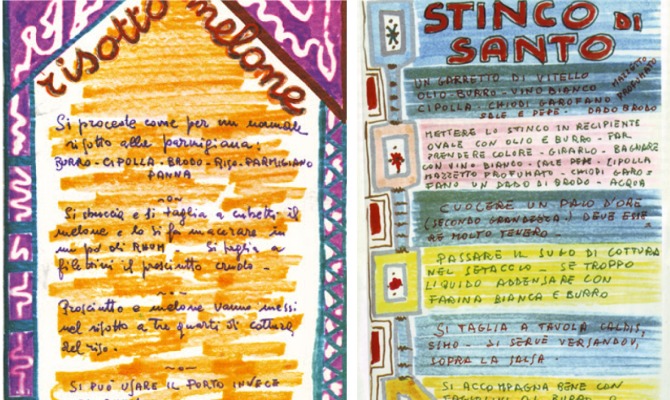 risotto melone
Si procede come per un normale
risotto alla parmigiana:
BURRO - CIPOLLA - BRODO - RISO - PARMIGIANO
PANNA
Si sbuccia e si taglia a cubetti il
melone e lo si fa macerare in
un pò di RHUM Si taglia a
filettini il prosciutto crudo -
Prosciutto e melone vanno messi
nel risotto a tre quarti di cottura
del riso.
SI PUÒ USARE IL PORTO INVECE
STINCO DI
SANTO
UN GARRETTO DI VITELLO
OLIO - BURRO - VINO BIANCO
CIPOLLA - CHIODI GAROFANO
SALE E PEPE - DADO BRODO
MAZZETTO
PROFUMATO
METTERE LO STINCO IN RECIPIENTE
OVALE CON OLIO E BURRO - FAR
PRENDERE COLORE - GIRARLO - BAGNARE
CON VINO BIANCO - SALE PEPE - CIPOLLA
MAZZETTO PROFUMATO - CHIODI GARO=
FANO UN DADO DI BRODO - ACQUA
CUOCERE UN PAIO D'ORE
(SECONDO GRANDEZZA) DEVE ESSE=
RE MOLTO TENERO -
PASSARE IL SUGO DI COTTURA
NEL SETACCIO - SE TROPPO
LIQUIDO ADDENSARE CON
FARINA BIANCA E BURRO
SI TAGLIA A TAVOLA CALDIS,
SIMO - SI SERVE VERSANDOVI,
SOPRA LA SALSA -
SI ACCOMPAGNA BENE CON
TAGLIOLINI AL BURRO O